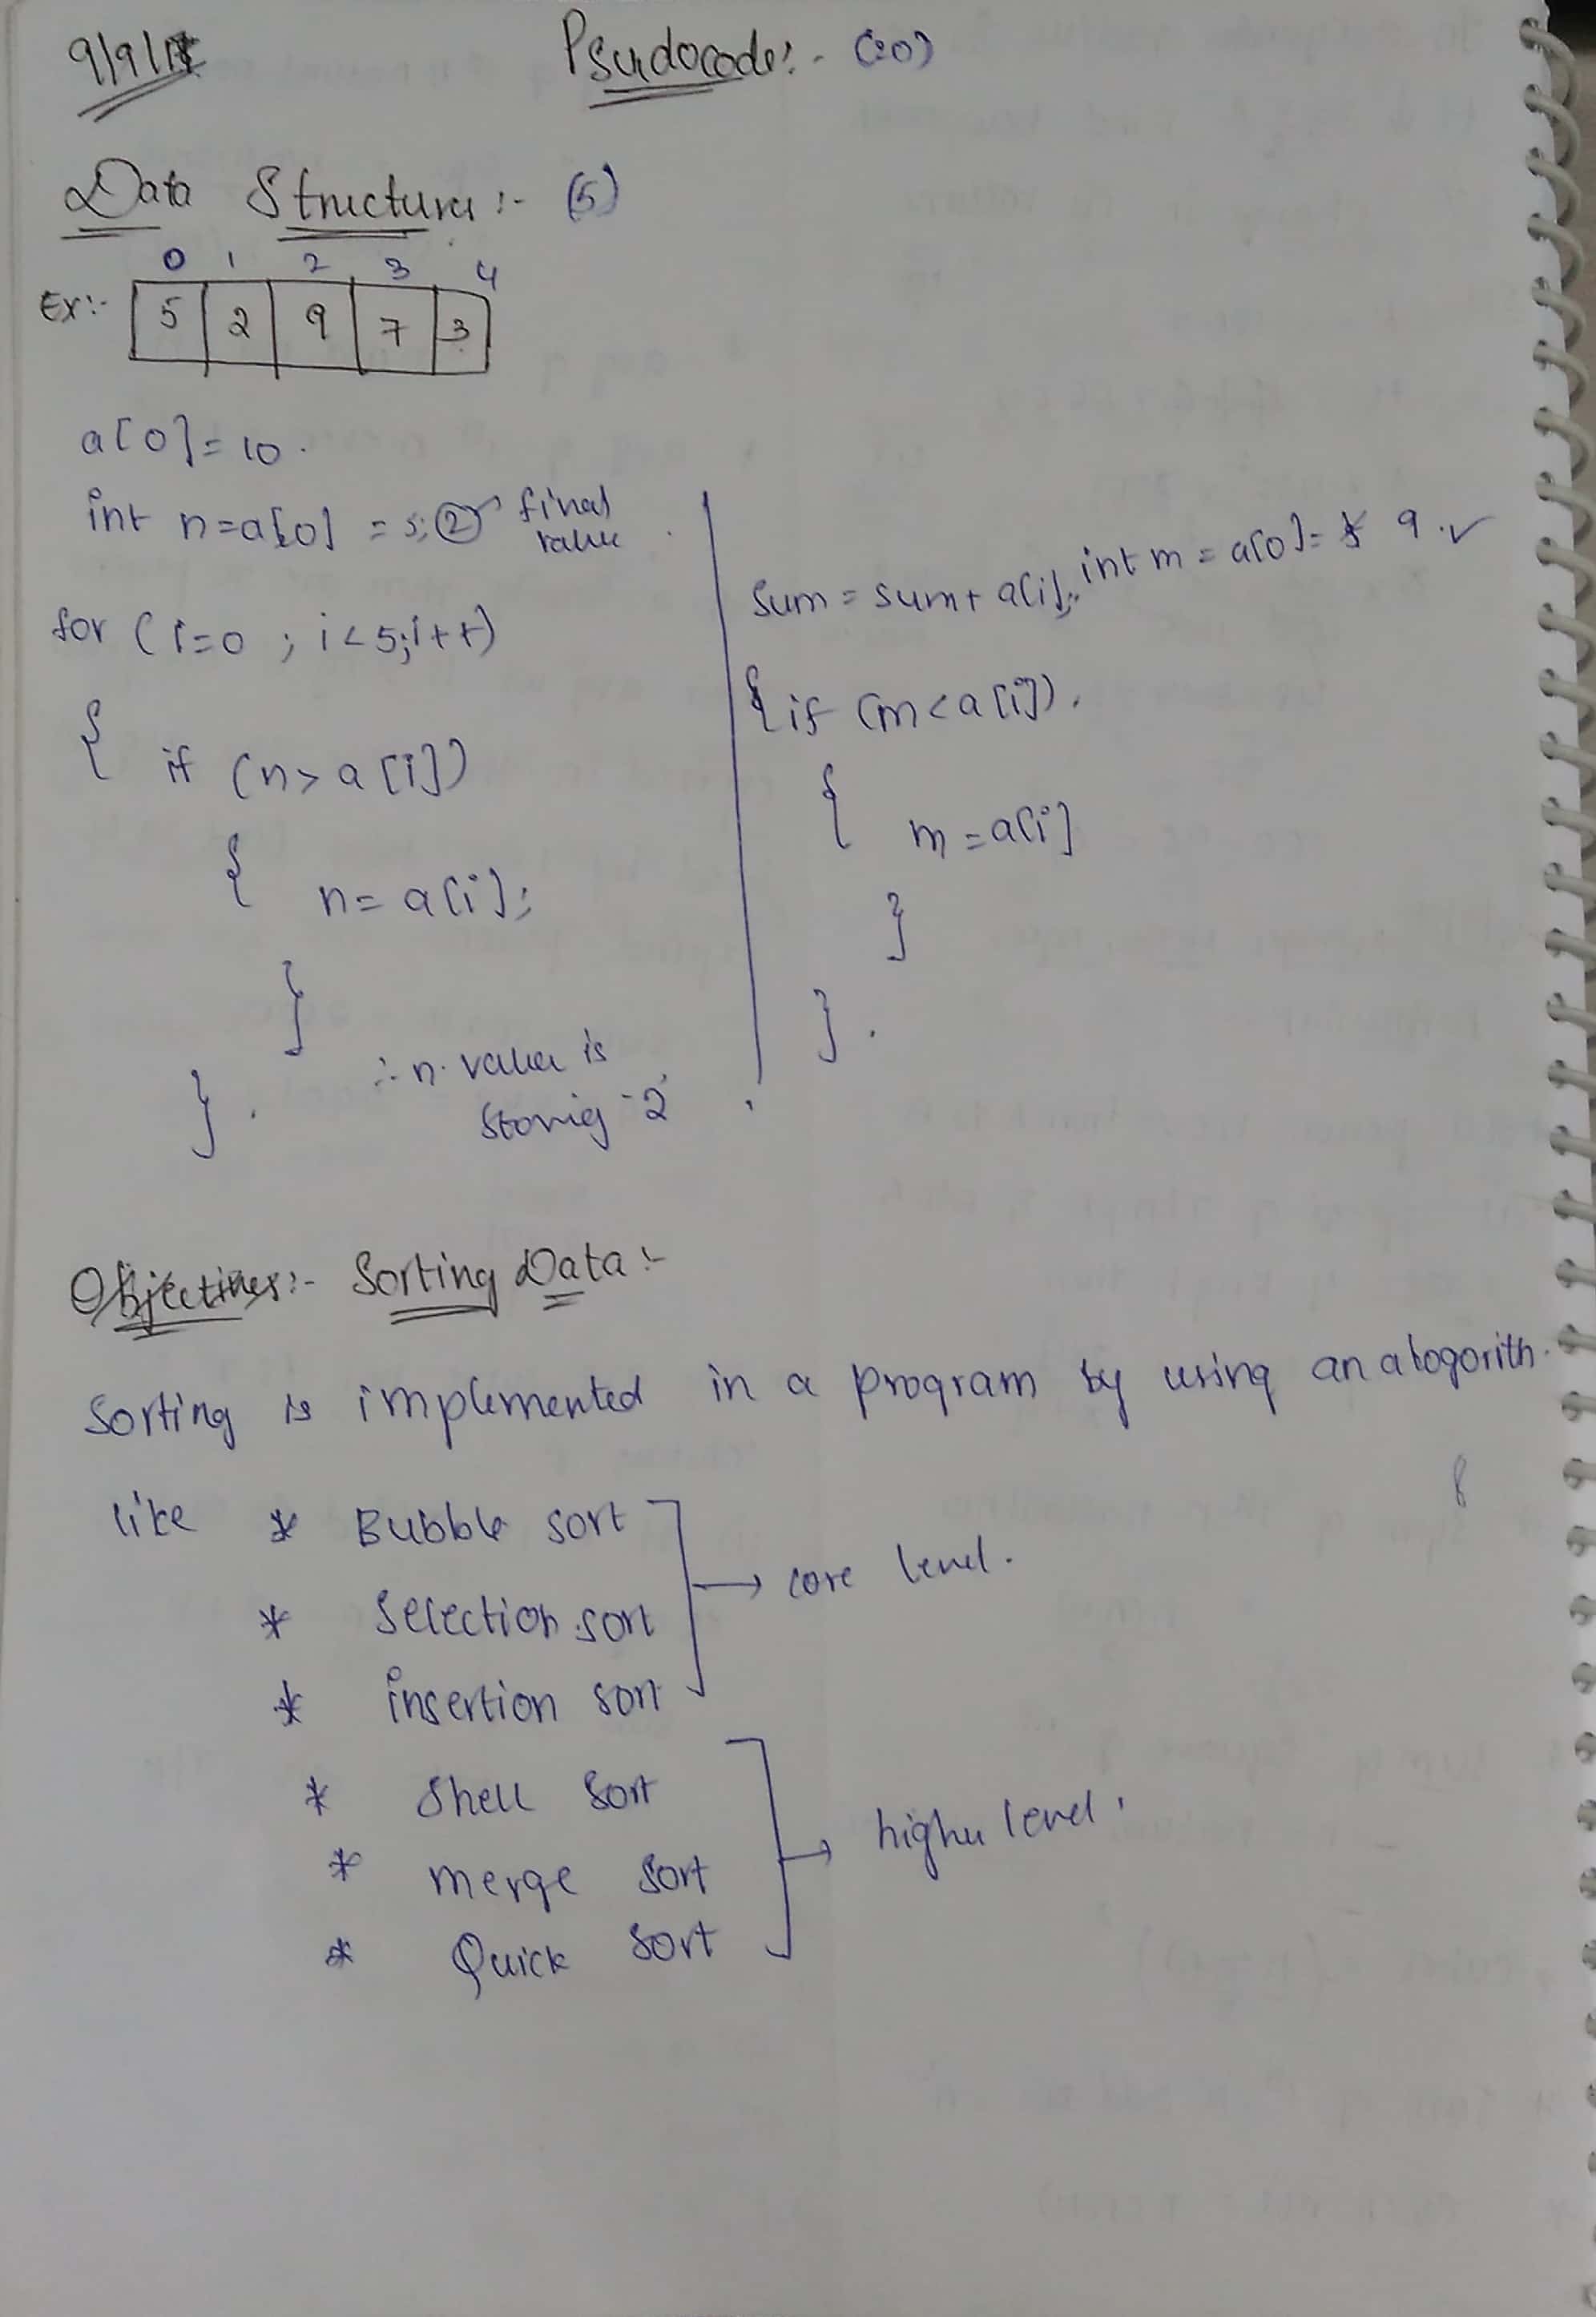 Psudocode:- (20)
Data Structures :- (5)
0 1 2 3 4
Ex:- 5 2 9 7 3
a[0]=10.
int n=a[0] = 5; 2 final value
for (i=0 ; i<5;i++)
{ if (n> a[i])
{ n= a[i];
}
} .
∴ n. value is
storig - 2
sum = sum+ a[i];, int m = a[0]= 5 9 ✓
{ if (m<a[i]).
{ m=a[i]
}
} .
Objectives:- Sorting Data :-
Sorting is implemented in a program by using an alogorith.
like * Bubble sort
* Selection sort
* insertion sort
→ core level.
* Shell sort
* merge sort
* Quick sort
→ higher level.